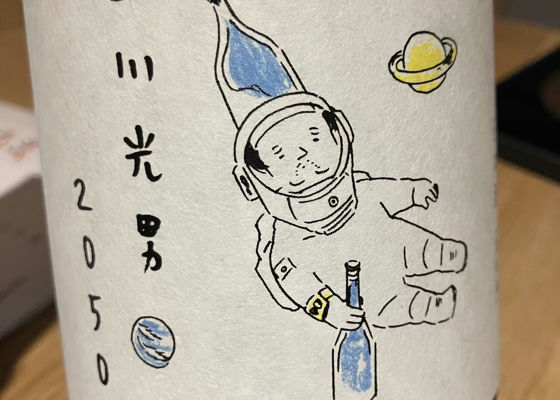 川光男
2050